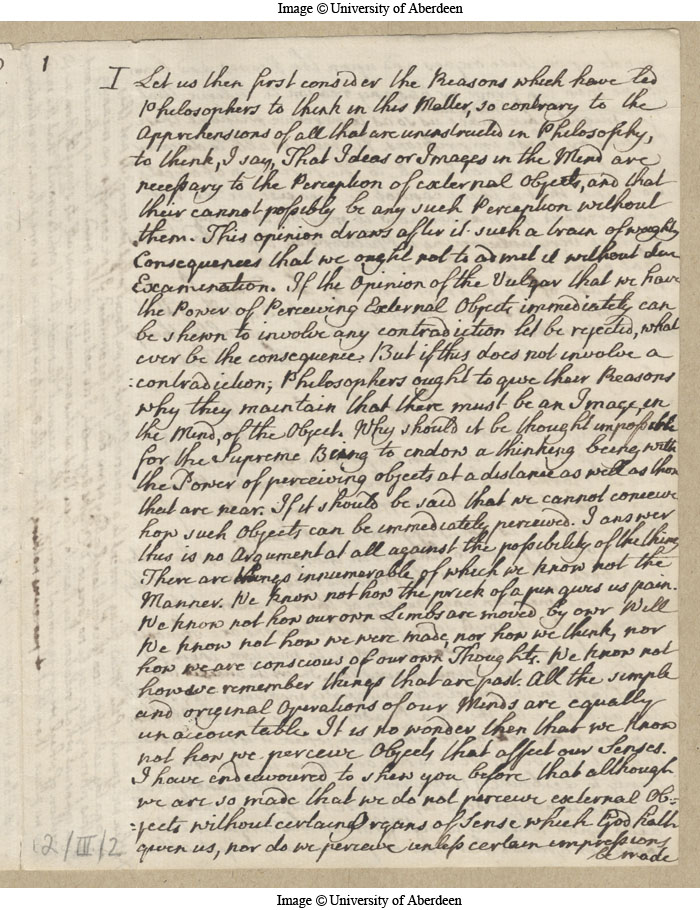 Image © University of Aberdeen
1
I Let us then first consider the Reasons which have led
Philosophers to think in this Matter, so contrary to the
Apprehensions of all that are uninstructed in Philosophy,
to think, I say, That Ideas or Images in the Mind are
necessary to the Perception of external Objects, and that
their cannot possibly be any such Perception without
them. This opinion draws after it such a train of weighty
Consequences that we ought not to admit it without due
Examination. If the Opinion of the Vulgar that we have
the Power of Perceiving External Objects immediately can
be shewn to involve any contradiction let be rejected, what
ever be the consequence. But if this does not involve a
:contradiction; Philosophers ought to give their Reasons
why they maintain that there must be an Image, in
the Mind, of the Object. Why should it be thought impossible
for the Supreme Being to endow a thinking being with
the Power of perceiving objects at a distance as well as those
that are near. If it should be said that we cannot conceive
how such Objects can be immediately perceived. I answer
this is no Argument at all against the possibility of the thing
There are things innumerable of which we know not the
Manner. We know not how the prick of a pin gives us pain.
We know not how our own Limbs are moved by our Will
We know not how we were made, nor how we think, nor
how we are conscious of our own Thoughts. We know not
how we remember things that are past. All the simple
and original Operations of our Minds are equally
unaccountable. It is no wonder then that we know
not how we perceive Objects that affect our Senses.
I have endeavoured to shew you before that although
we are so made that we do not perceive external Ob=
:jects without certain Organs of Sense which God hath
given us, nor do we perceive unless certain impressions
be made
2/III/2
Image © University of Aberdeen